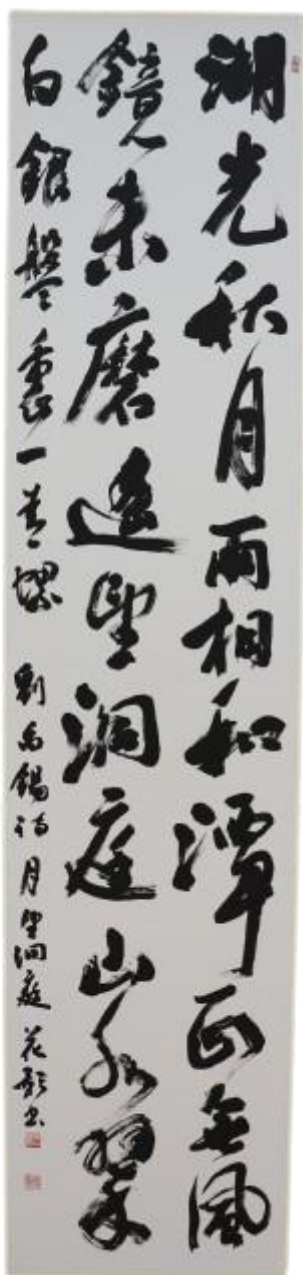 湖光秋月兩相和潭面無風
鏡未磨遙望洞庭山水翠
白銀盤裏一青螺 劉禹錫詩月望洞庭 花書